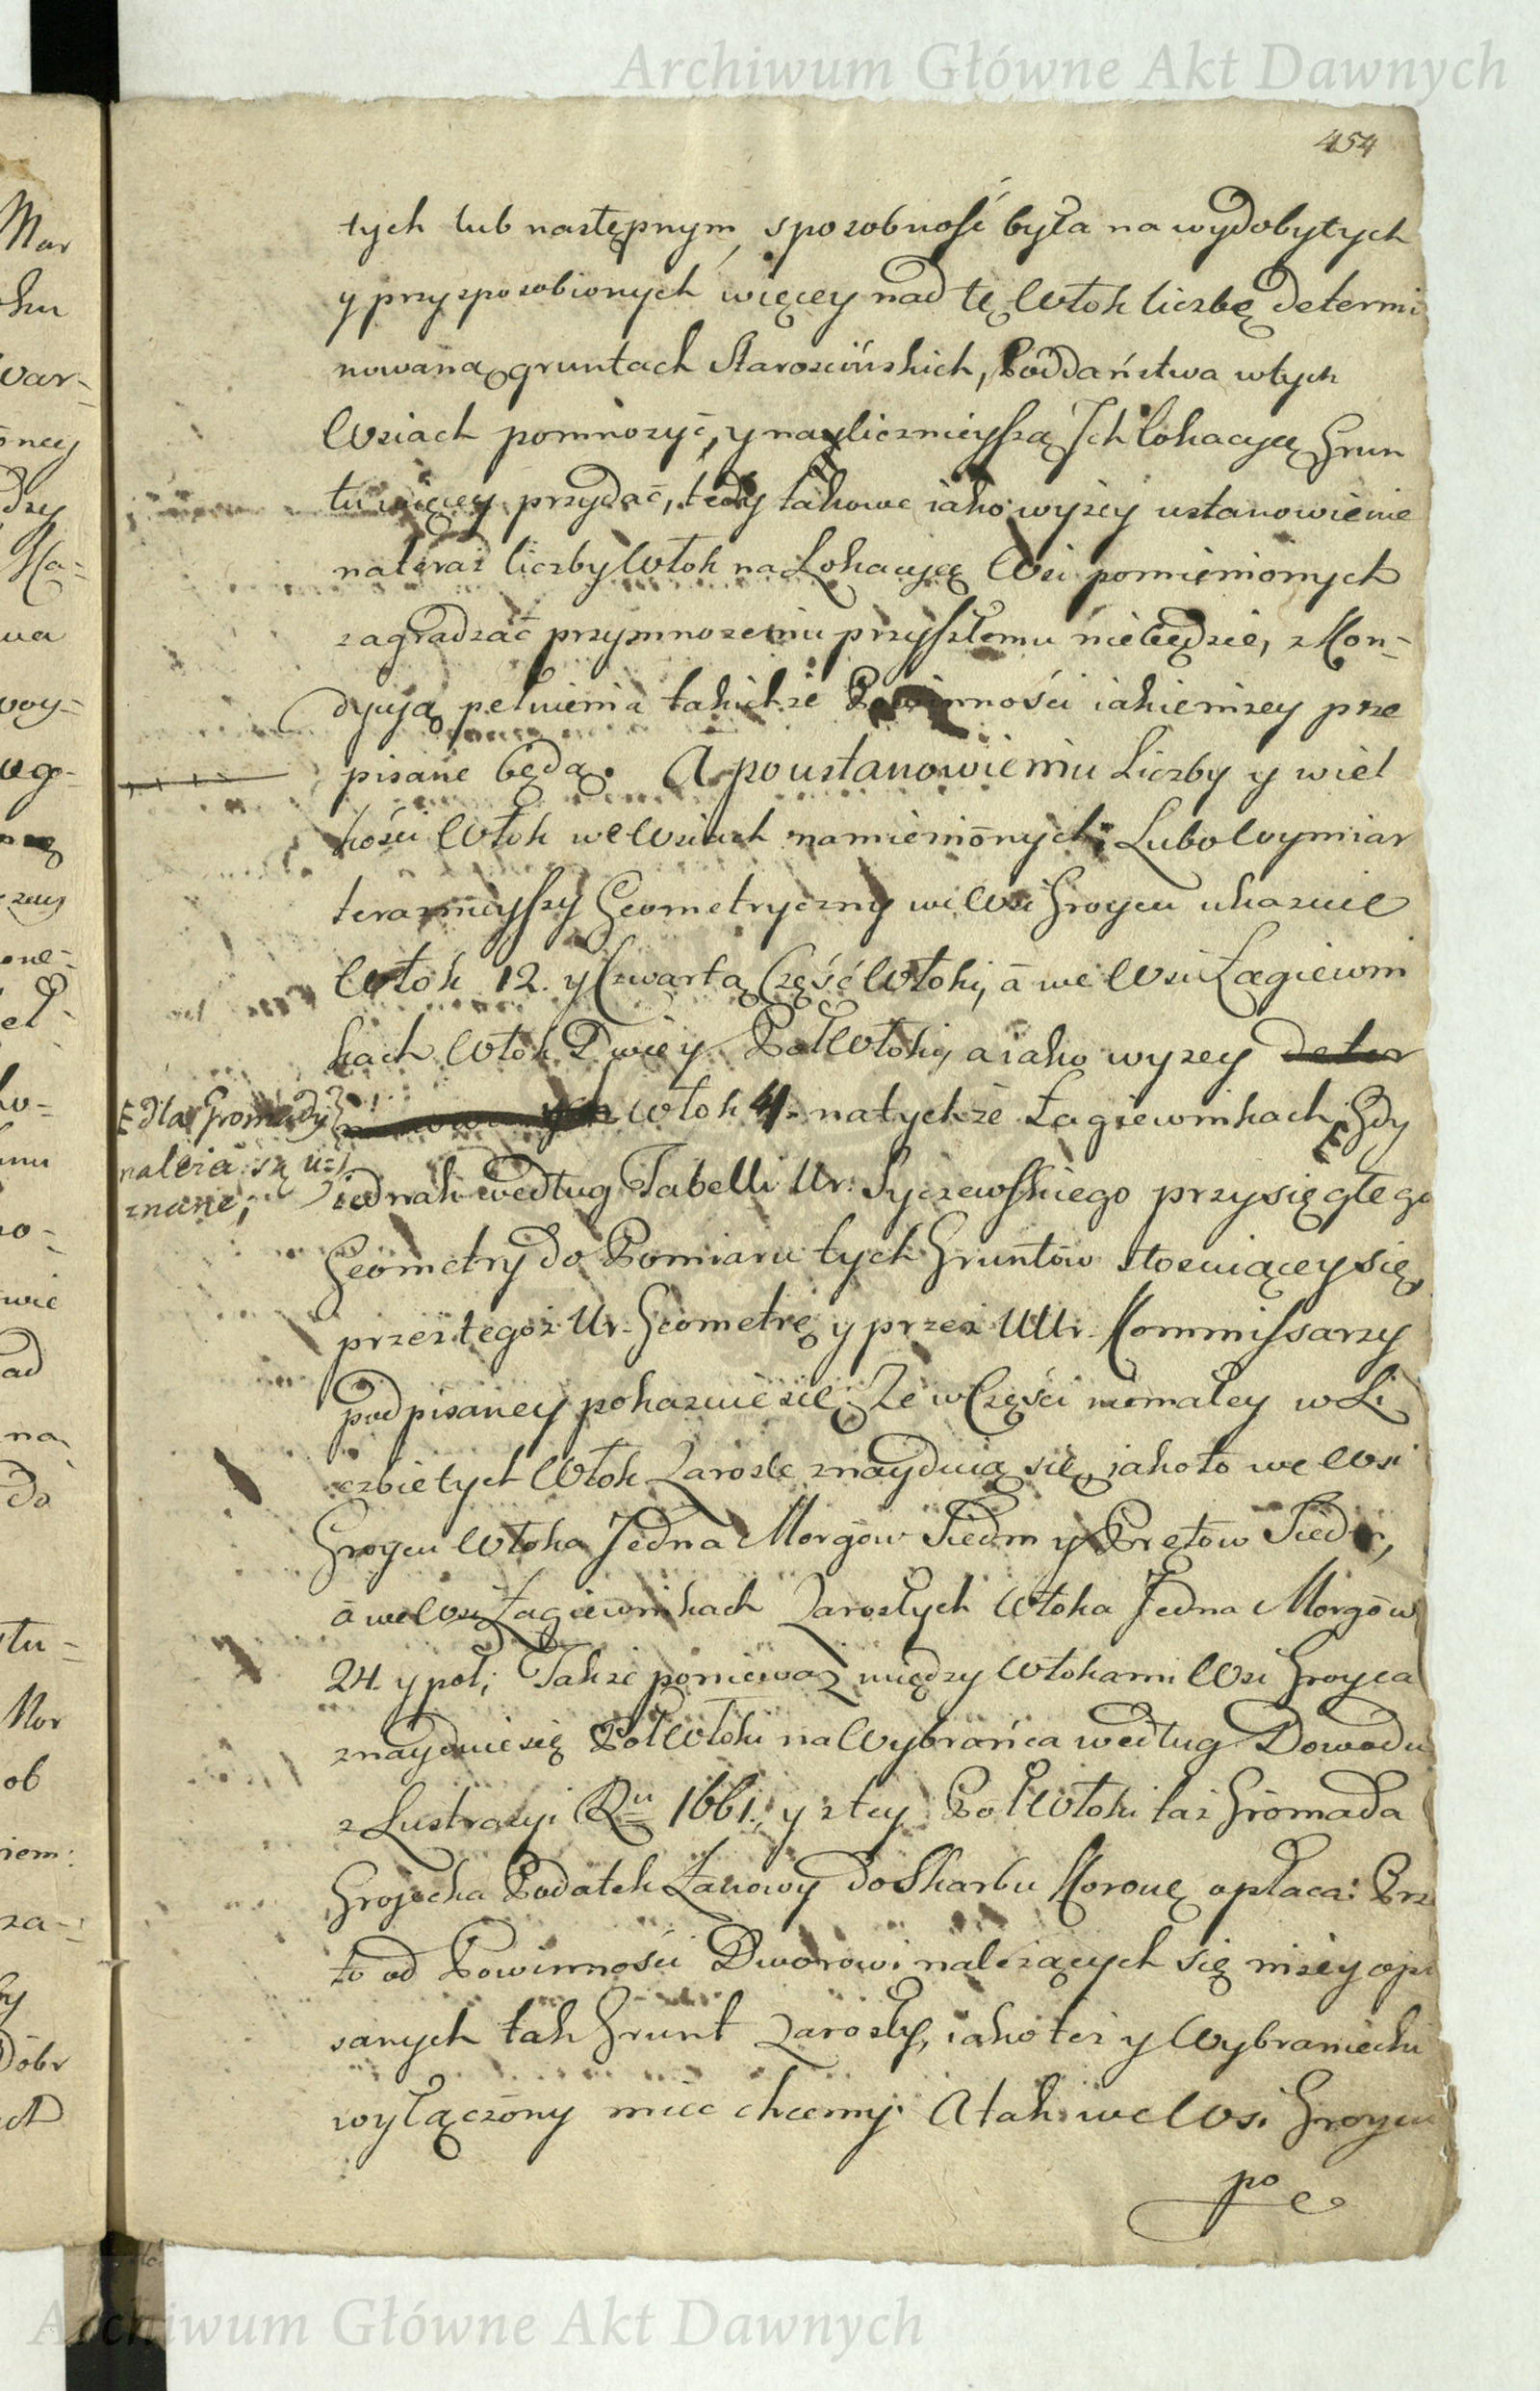 Archiwum Główne Akt Dawnych
454
tych lub następnym, sposobność była na wydobytych
y przysposobionych więcey nad tę Włok liczbę determi
nowaną gruntach Starościńskich, Poddaństwa w tych
Wsiach pomnożyć, y na ylicznieyszą Ich lokacyą Grun
tu więcey przydać, tedy takowe iako wyżey ustanowienie
na teraz liczby Włok na Lokacyą Wsi pomienionych
zagradzać przymnożeniu przyszłemu niebędzie, z Kon=
dycyą pełnienia takichże Powinności iakie niżey prze
pisane będą. A po ustanowieniu Liczby y wiel
kości Włok we Wsiach namienionych; Lubo Wymiar
teraznieyszy Geometryczny we Wsi Groycu ukazuie
Włok 12. y Czwartą Część Włoki, á we Wsi Łagiewni
kach Włok Dwie y Poł Włoki, a iako wyżey deter
Włok 4. na tychże Łagiewnikach Gdy
dla Gromady
należeć są u=
znane;
iednak według Tabelli Ur. Syczewskiego przysięgłego
Geometry do Pomiaru tych Gruntów stosuiącey się,
przez tegoż Ur. Geometrę y przez UUr. Kommissarzy
podpisaney pokazuie się; Ze w Części niemałey w Li
czbie tych Włok Zarosłe znayduią się, iako to we Wsi
Groycu Włoka Jedna Morgow Siedm y Prętow Siedm,
á we Wsi Łagiewnikach Zarosłych Włoka Jedna Morgów
24. y poł; Także ponieważ między Włokami Wsi Groyca
znayduie się Poł Włoki na Wybrańca według Dowodu
z Lustracyi Ru 1661. y z tey Poł Włoki taż Gromada
Grojecka Podatek Łanowy do Skarbu Koronę opłaca: Prze
to od Powinności Dworowi należących się niżey opi
sanych tak Grunt Zarosły, iako też y Wybraniecki
wyłączony mieć chcemy. A tak we Wsi Groycu
po
Archiwum Główne Akt Dawnych